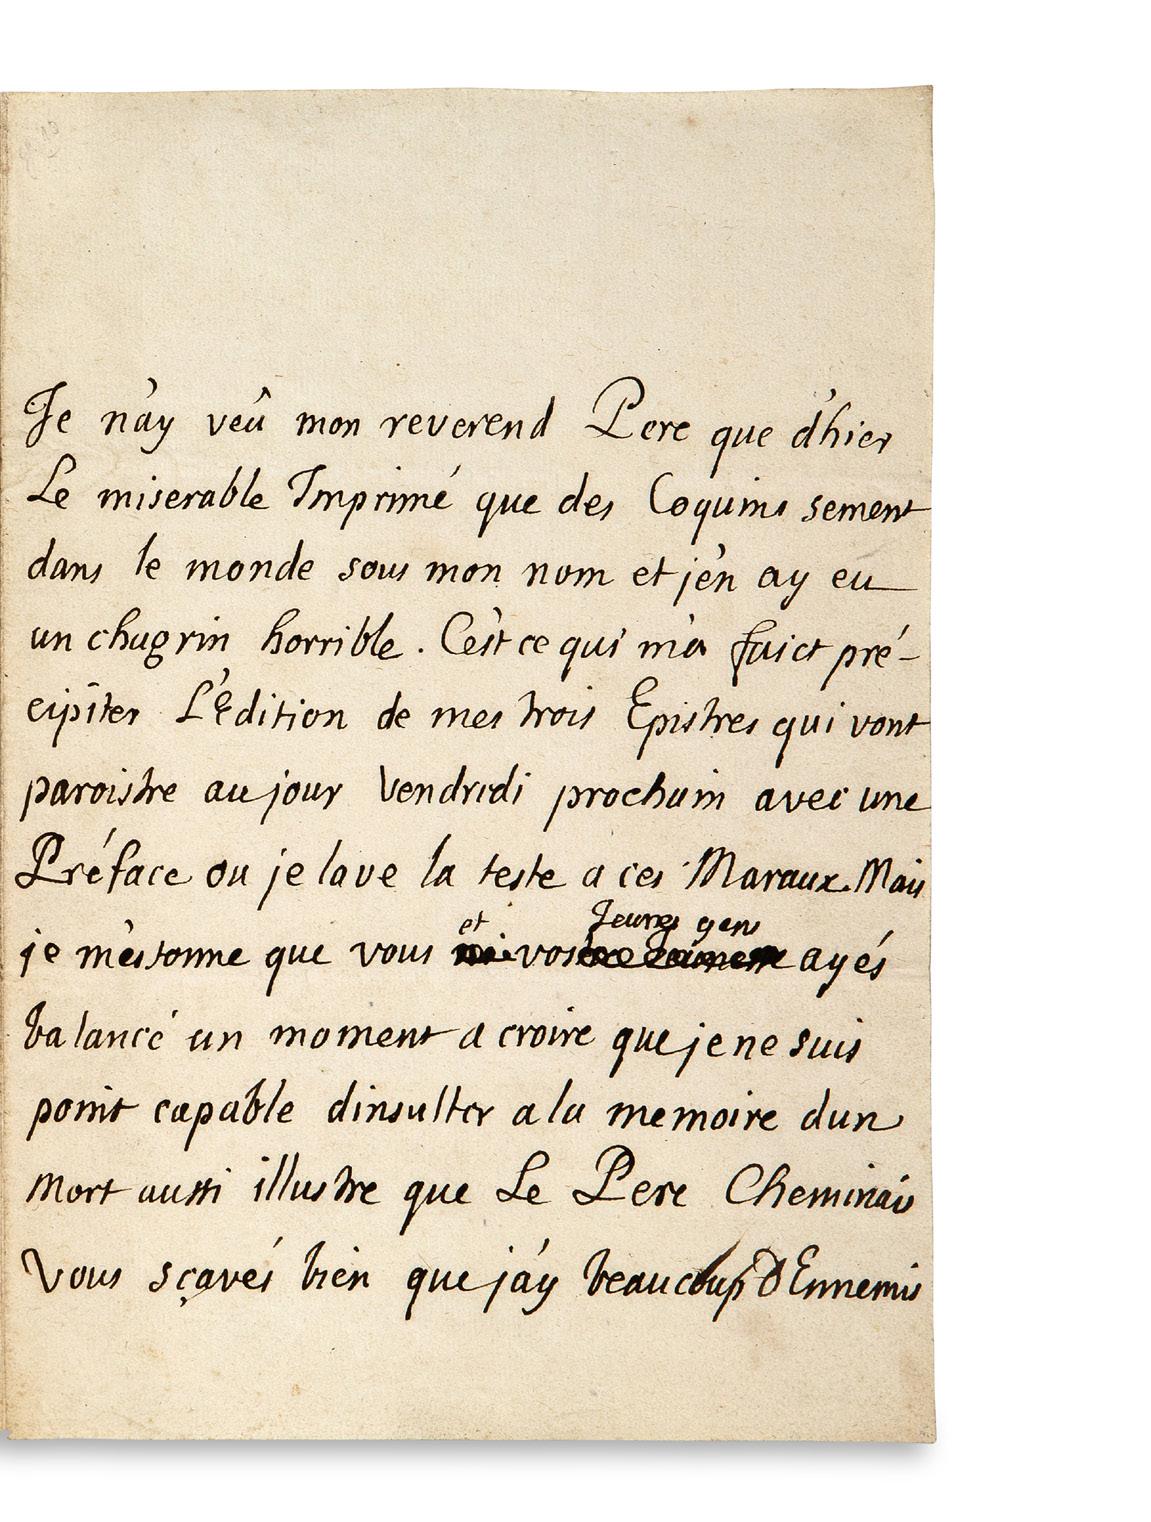 Je n'ay veû mon reverend Pere que d'hier
Le miserable Imprimé que des Coquins sement
dans le monde sous mon nom et j'en ay eu
un chagrin horrible. C'est ce qui m'a faict pré-
cipiter L'Edition de mes trois Epistres qui vont
paroistre au jour Vendredi prochain avec une
Préface ou je lave la teste a ces Maraux. Mais
et Jeunes gens
je m'estonne que vous vos ayés
balancé un moment a croire que je ne suis
point capable d'insulter a la memoire d'un
Mort aussi illustre que Le Pere Cheminais
Vous sçavés bien que j'ay beaucoup D'Ennemis